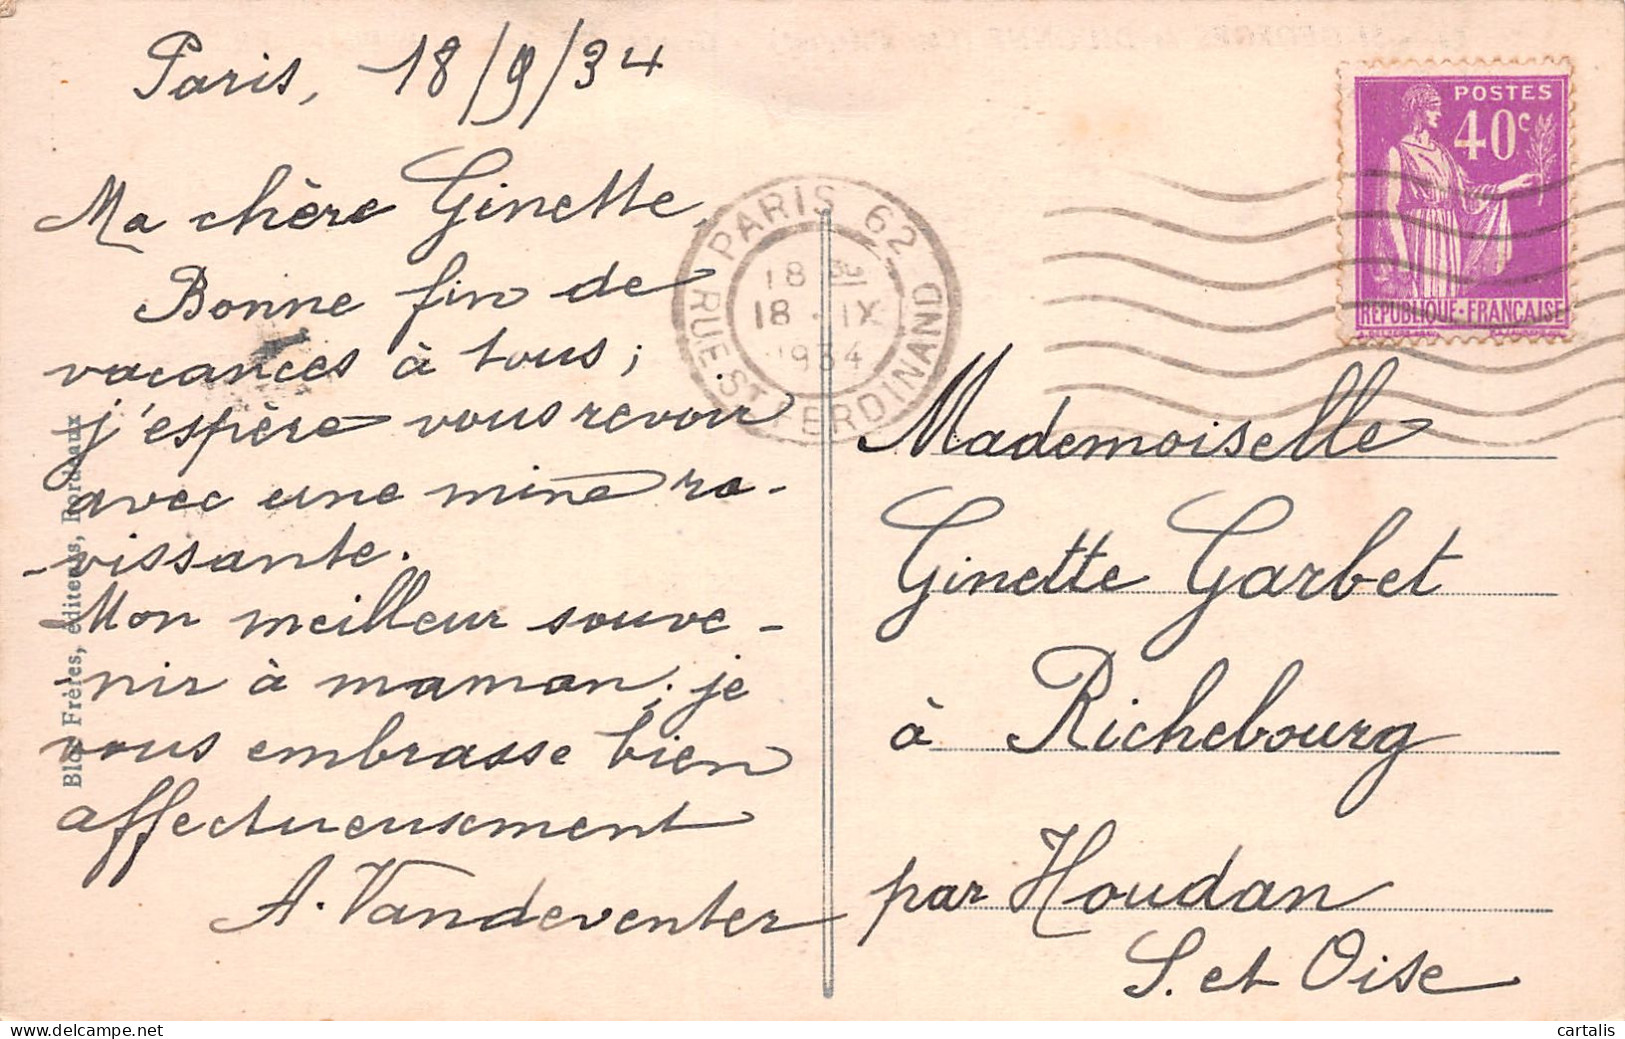 Paris, 18/9/34
Ma chère Ginette,
Bonne fin de
vacances à tous;
j'espère vous revoir
avec une mine ra-
-vissante.
Mon meilleur souve-
nir à maman; je
vous embrasse bien
affectueusement
A. Vandeventer
Bloc Frères, éditeurs, Bordeaux
PARIS 62
RUE ST FERDINAND
18 30
18 - IX
1934
POSTES
40c
REPUBLIQUE·FRANÇAISE
Mademoiselle
Ginette Garbet
à Richebourg
par Houdan
S. et Oise
cartalis.com